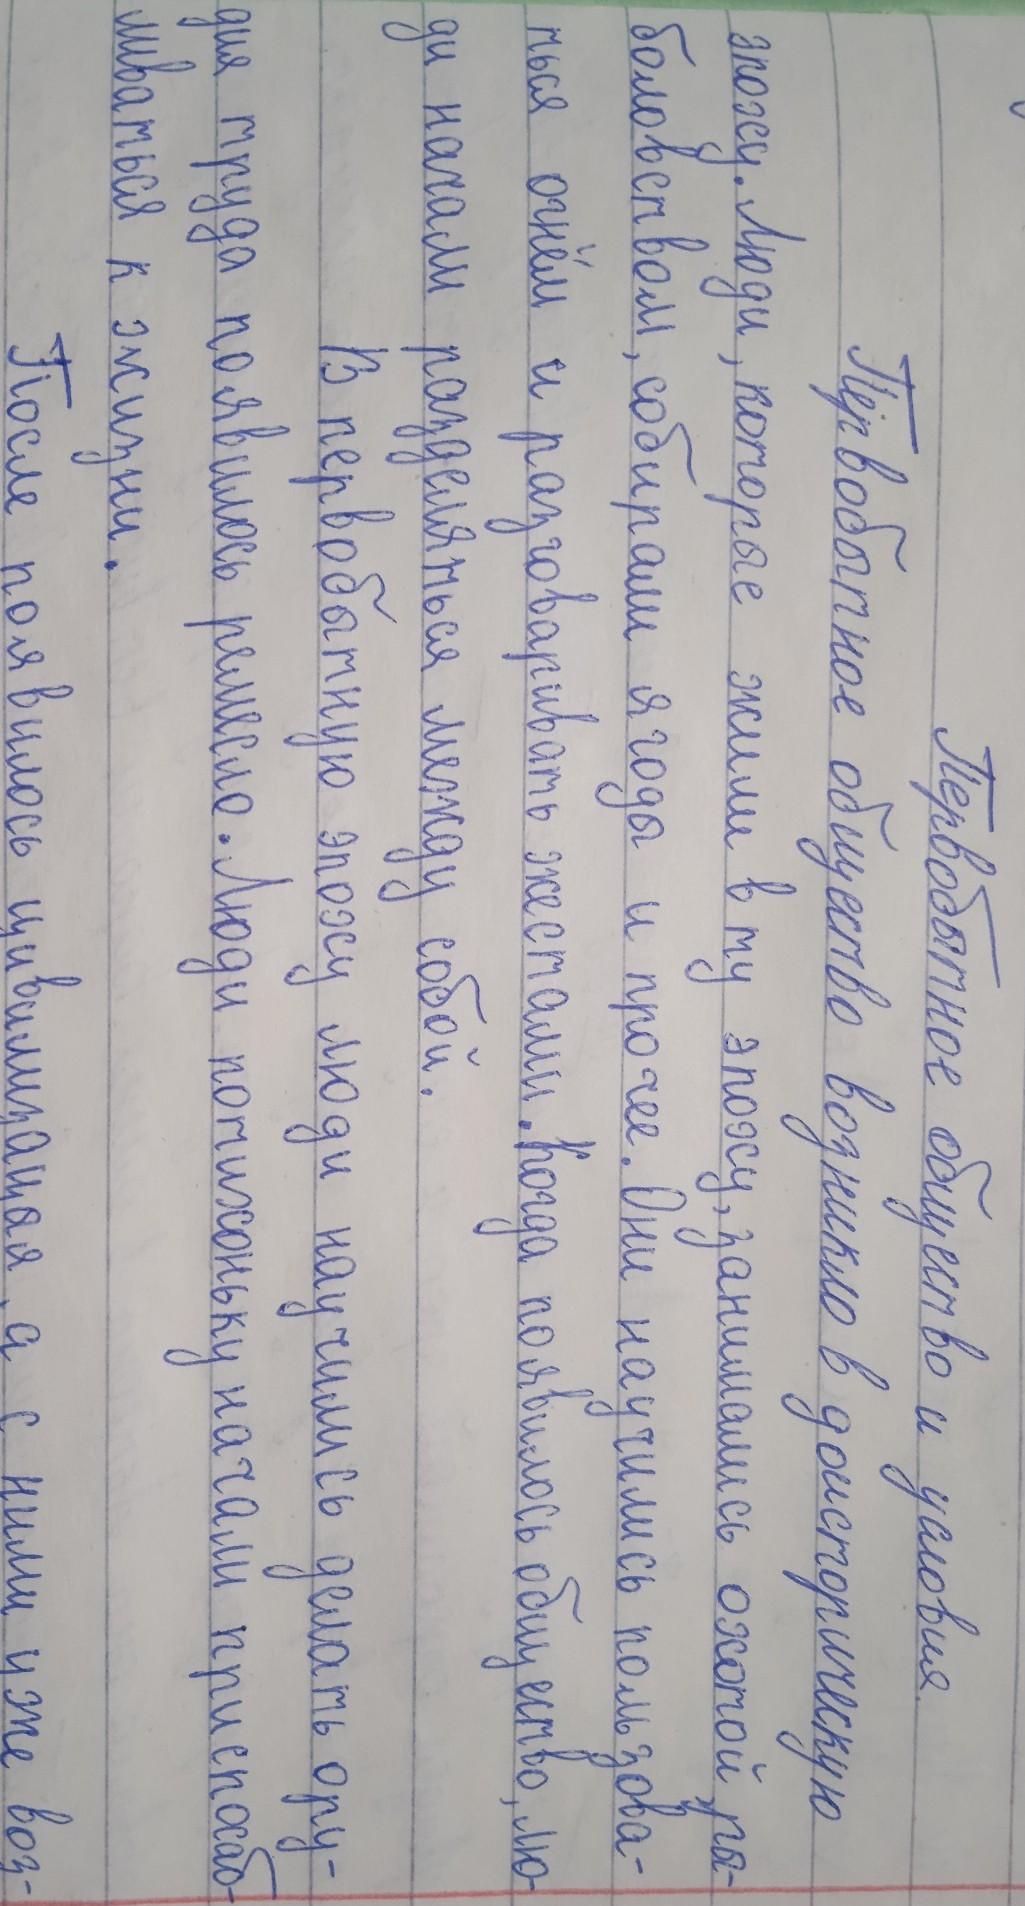 Первобытное общество и условия.
Первобытное общество возникло в доисторическую
эпоху. Люди, которые жили в ту эпоху, занимались охотой, ры-
боловством, собирали ягоды и прочее. Они научились пользова-
ться огнём и разговаривать жестами. Когда появилось общество, лю-
ди начали разделяться между собой.
В первобытную эпоху люди научились делать ору-
дия труда появилось ремесло. Люди потихоньку начали приспосаб-
ливаться к жизни.
После появилось цивилизация, а с ними уже воз-